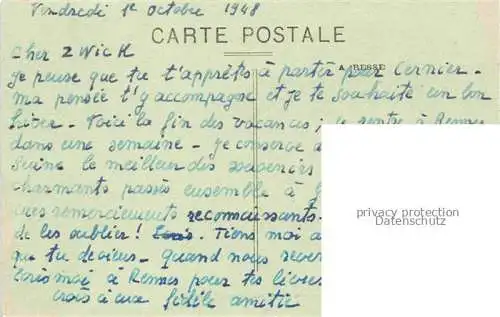 Vendredi 1e octobre 1948
CARTE POSTALE
ADRESSE
Cher ZWICK
je pense que tu t'apprêtes à partir pour Cernier -
ma pensée t'y accompagne et je te souhaite un bon
hiver - Voici la fin des vacances ; je rentre à Rennes
dans une semaine - je conserve
le meilleur des souvenirs
charmants passés ensemble à
remerciements reconnaissants.
de les oublier ! Tiens moi
que tu deviens - Quand nous
Ecris moi à Rennes pour tes
crois à ma fidèle amitié
privacy protection
Datenschutz